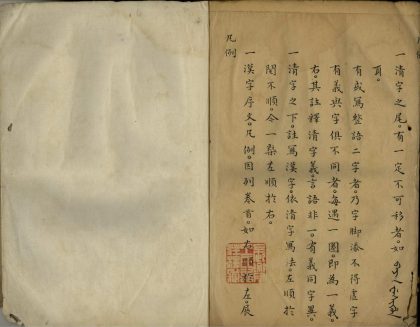 凡例
一漢字序文。凡例。因列卷首。如右順於左。展
閱不順。今一槩左順於右。
一清字之下。註寫漢字。依清字寫法。左順於
右。其註釋清字義。言語非一。有義同字異。
有義與字俱不同者。每遇一圈。即爲一義。
有或寫整語二字者。乃字脚添不得虛字
頁。
一清字之尾。有一定不可移者。如